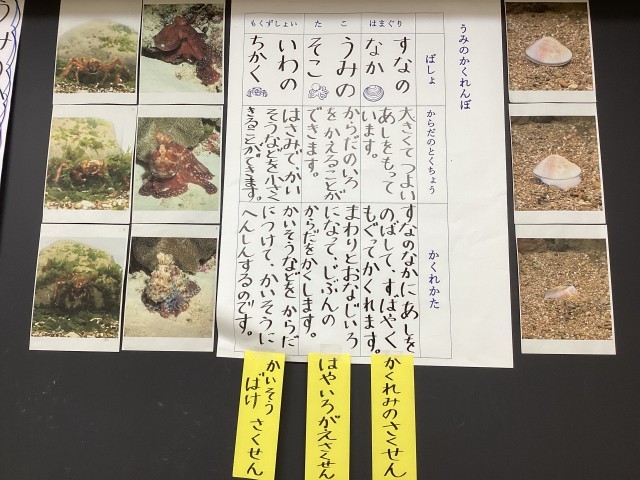 うみのかくれんぼ
ばしょ
からだのとくちょう
かくれかた
はまぐり
すなの
なか
大きくてつよい
あしをもって
います。
すなのなかにあしを
のばして、すばやく
もぐってかくれます。
かくれみのさくせん
たこ
うみの
そこ
からだのいろ
をかえることが
できます。
まわりとおなじいろ
になって、じぶんの
からだをかくします。
はやいろがえさくせん
もくずしょい
いわの
ちかく
はさみで、かい
そうなどを小さく
きることができます。
かいそうなどをからだ
につけて、かいそうに
へんしんするのです。
かいそう
ばけ さくせん